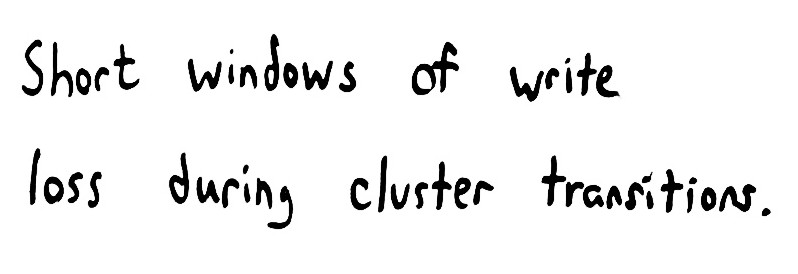 Short windows of write
loss during cluster transitions.